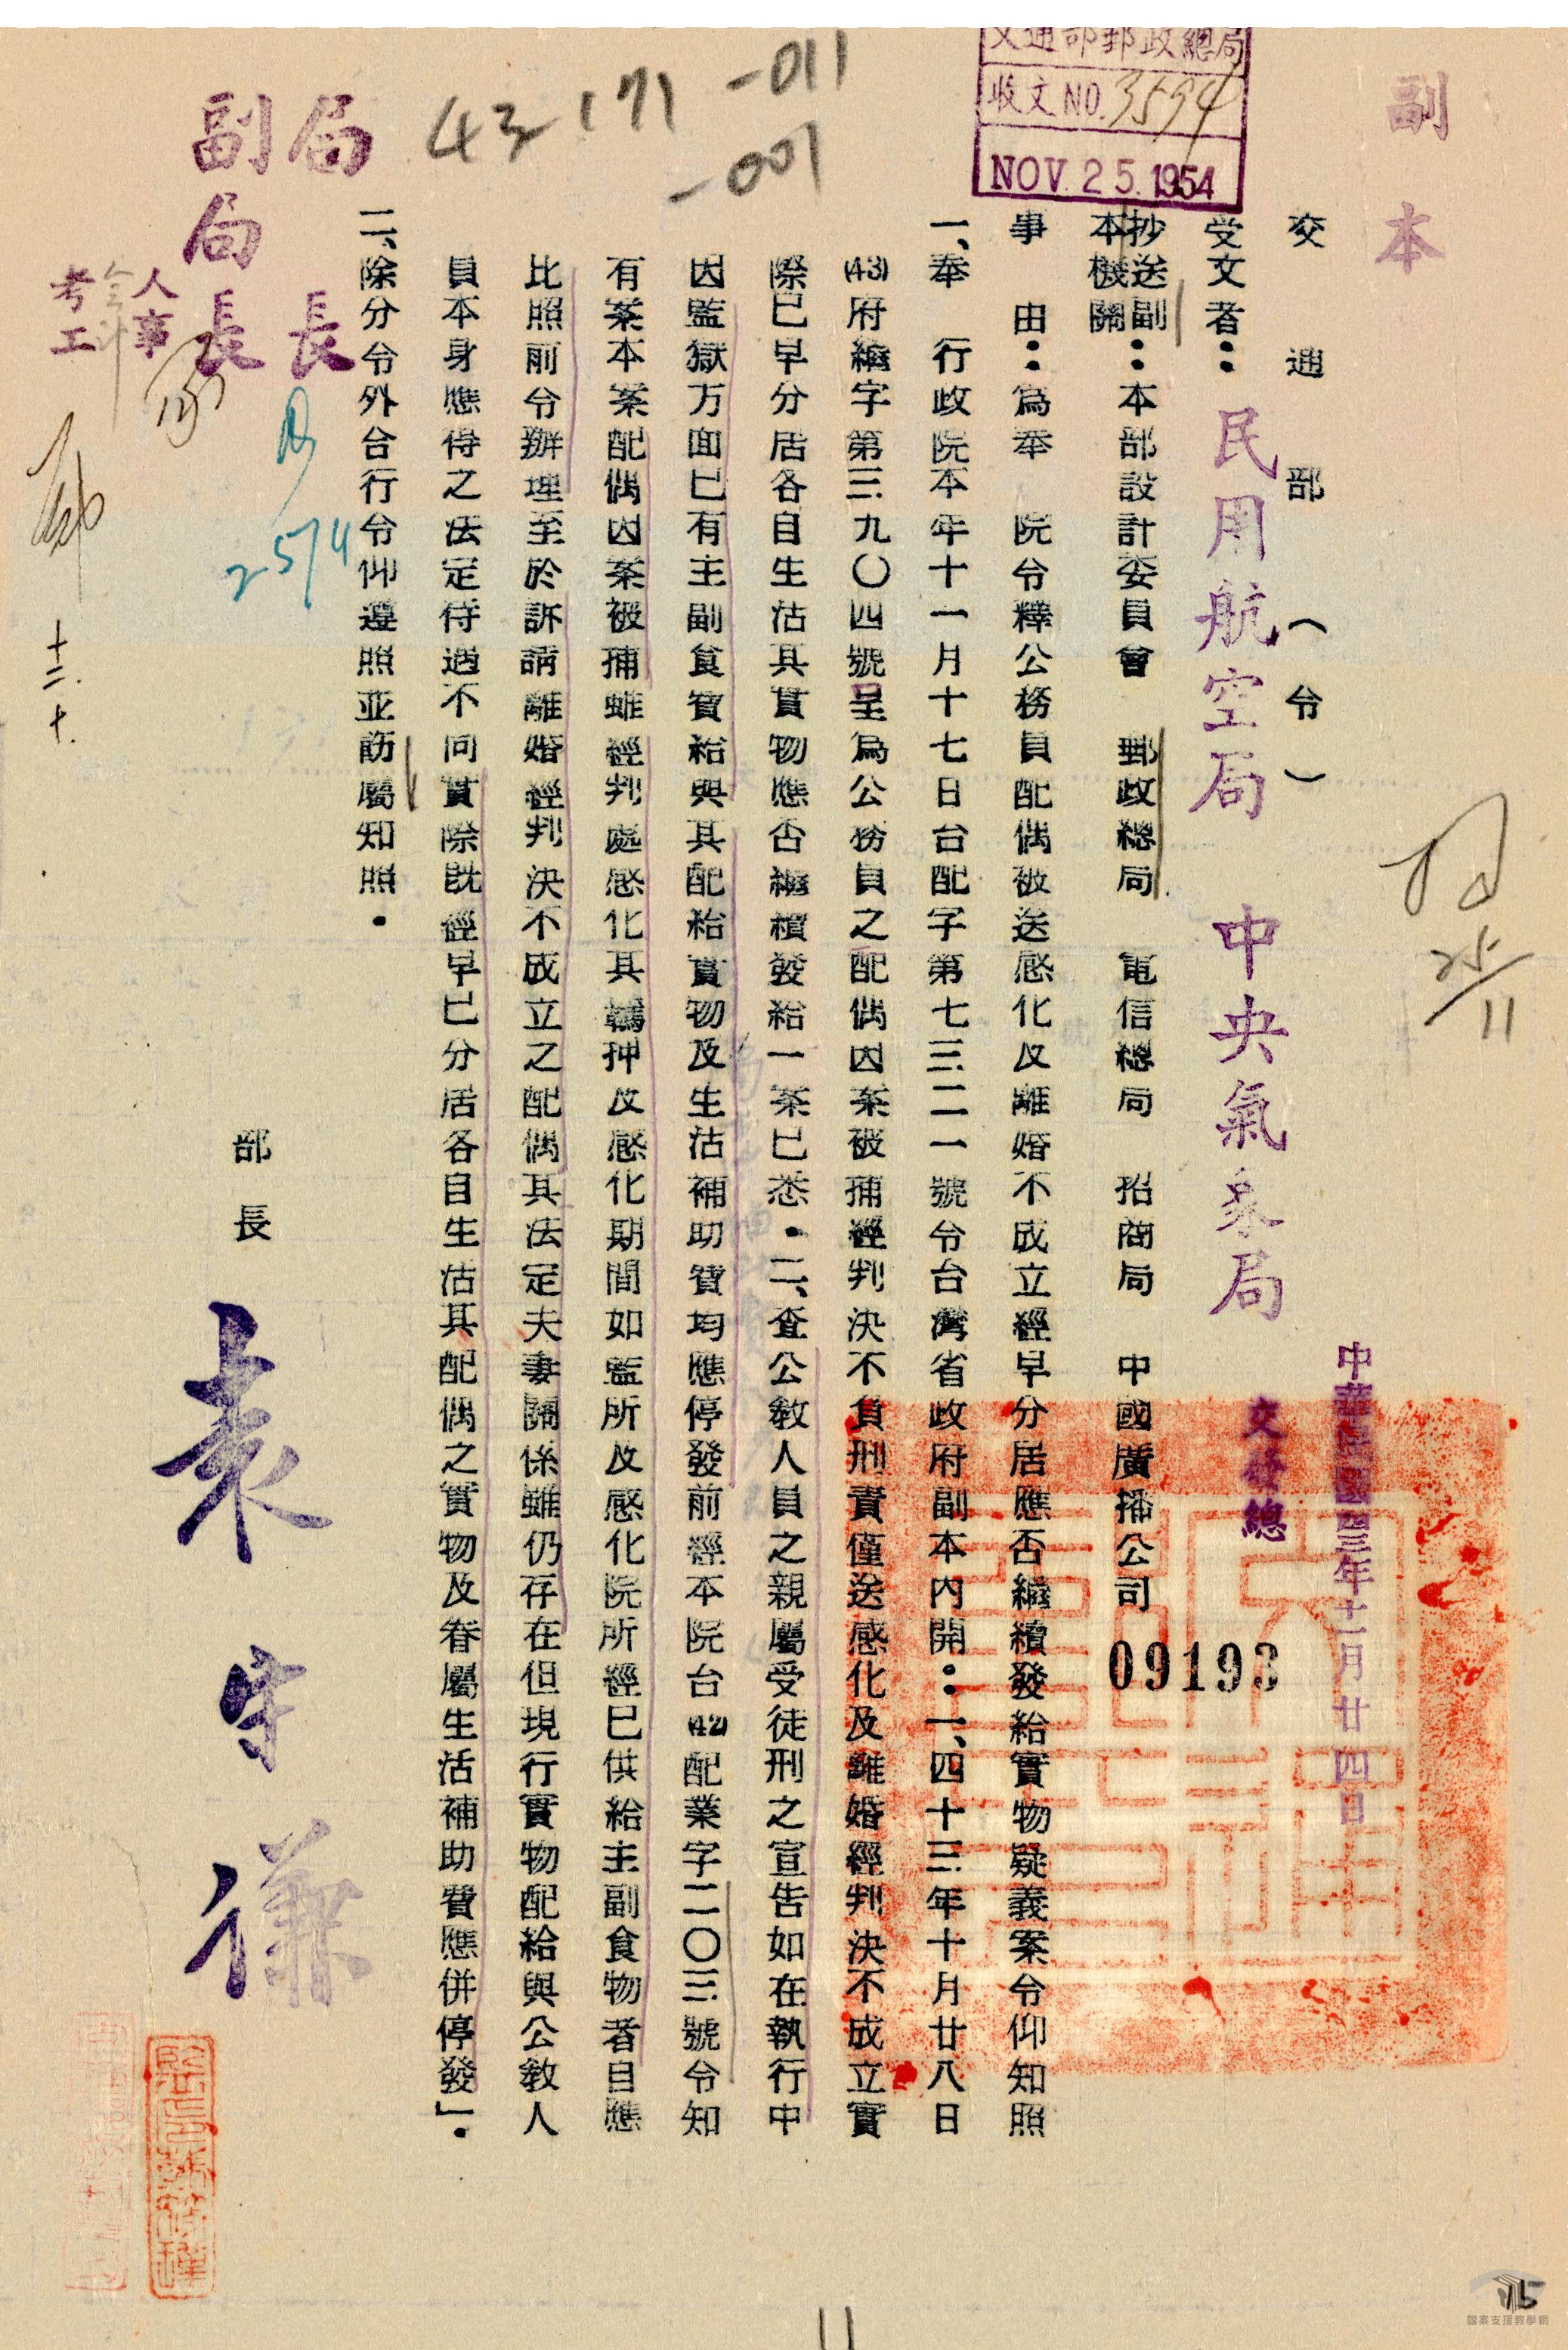 副本
交通部郵政總局
收文NO.3594
NOV. 25. 1954
43 171 -011
-001
交通部（令）
中華民國四十三年十一月廿四日
交發總
09193
受文者：民用航空局 中央氣象局
抄送副本機關：本部設計委員會 郵政總局 電信總局 招商局 中國廣播公司
事由：為奉 院令釋公務員配偶被送感化及離婚不成立經早分居應否繼續發給實物疑義案令仰知照
一、奉 行政院本年十一月十七日台配字第七三二一號令台灣省政府副本內開：一、四十三年十月廿八日
(43)府編字第三九〇四號呈為公務員之配偶因案被捕經判決不負刑責僅送感化及離婚經判決不成立實
際已早分居各自生活其實物應否繼續發給一案已悉．二、查公教人員之親屬受徒刑之宣告如在執行中
因監獄方面已有主副食實給與其配給實物及生活補助費均應停發前經本院台(42)配業字二〇三號令知
有案本案配偶因案被捕雖經判處感化其羈押及感化期間如監所及感化院所經已供給主副食物者自應
比照前令辦理至於訴請離婚經判決不成立之配偶其法定夫妻關係雖仍存在但現行實物配給與公教人
員本身應得之法定待遇不同實際既經早已分居各自生活其配偶之實物及眷屬生活補助費應併停發」．
二、除分令外合行令仰遵照並飭屬知照．
部長 袁守謙
局長
副局長
人事
會計
考工
25/11
25/11
十二.十.
11
115
檔案支援教學網